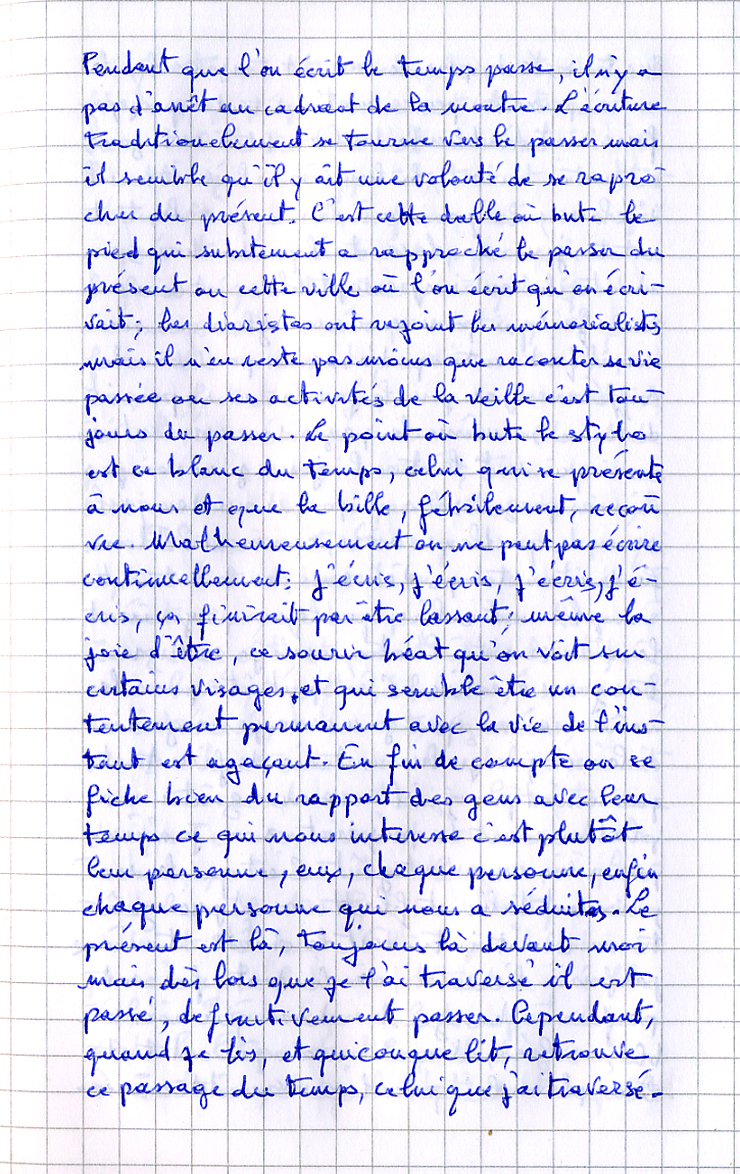 Pendant que l'on écrit le temps passe, il n'y a
pas d'arrêt au cadran de la montre. L'écriture
traditionelement se tourne vers le passer mais
il semble qu'il y ait une volonté de se rapro-
cher du présent. C'est cette dalle où bute le
pied qui subitement a rapproché le passer du
présent ou cette ville où l'on écrit qu'on écri-
vait; les diaristes ont rejoint les mémorialistes
mais il n'en reste pas moins que raconter sa vie
passée ou ses activités de la veille c'est tou-
jours du passer. Le point où bute le stylo
est ce blanc du temps, celui qui se présente
à nous et que la bille, fébrilement, recou
vre. Malheureusement on ne peut pas écrire
continuellement; j'écris, j'écris, j'écris, j'é-
cris, ça finirait par être lassant; même la
joie d'être, ce sourir béat qu'on voit sur
certains visages et qui semble être un con-
tentement permanent avec la vie de l'ins-
tant est agaçant. En fin de compte on se
fiche bien du rapport des gens avec leur
temps ce qui nous interesse c'est plutôt
leur personne, eux, chaque personne, enfin
chaque personne qui nous a séduites. Le
présent est là, toujours là devant moi
mais dès lors que je l'ai traversé il est
passé, definitivement passer. Cependant,
quand je lis, et quiconque lit, retrouve
ce passage du temps, celui que j'ai traversé.